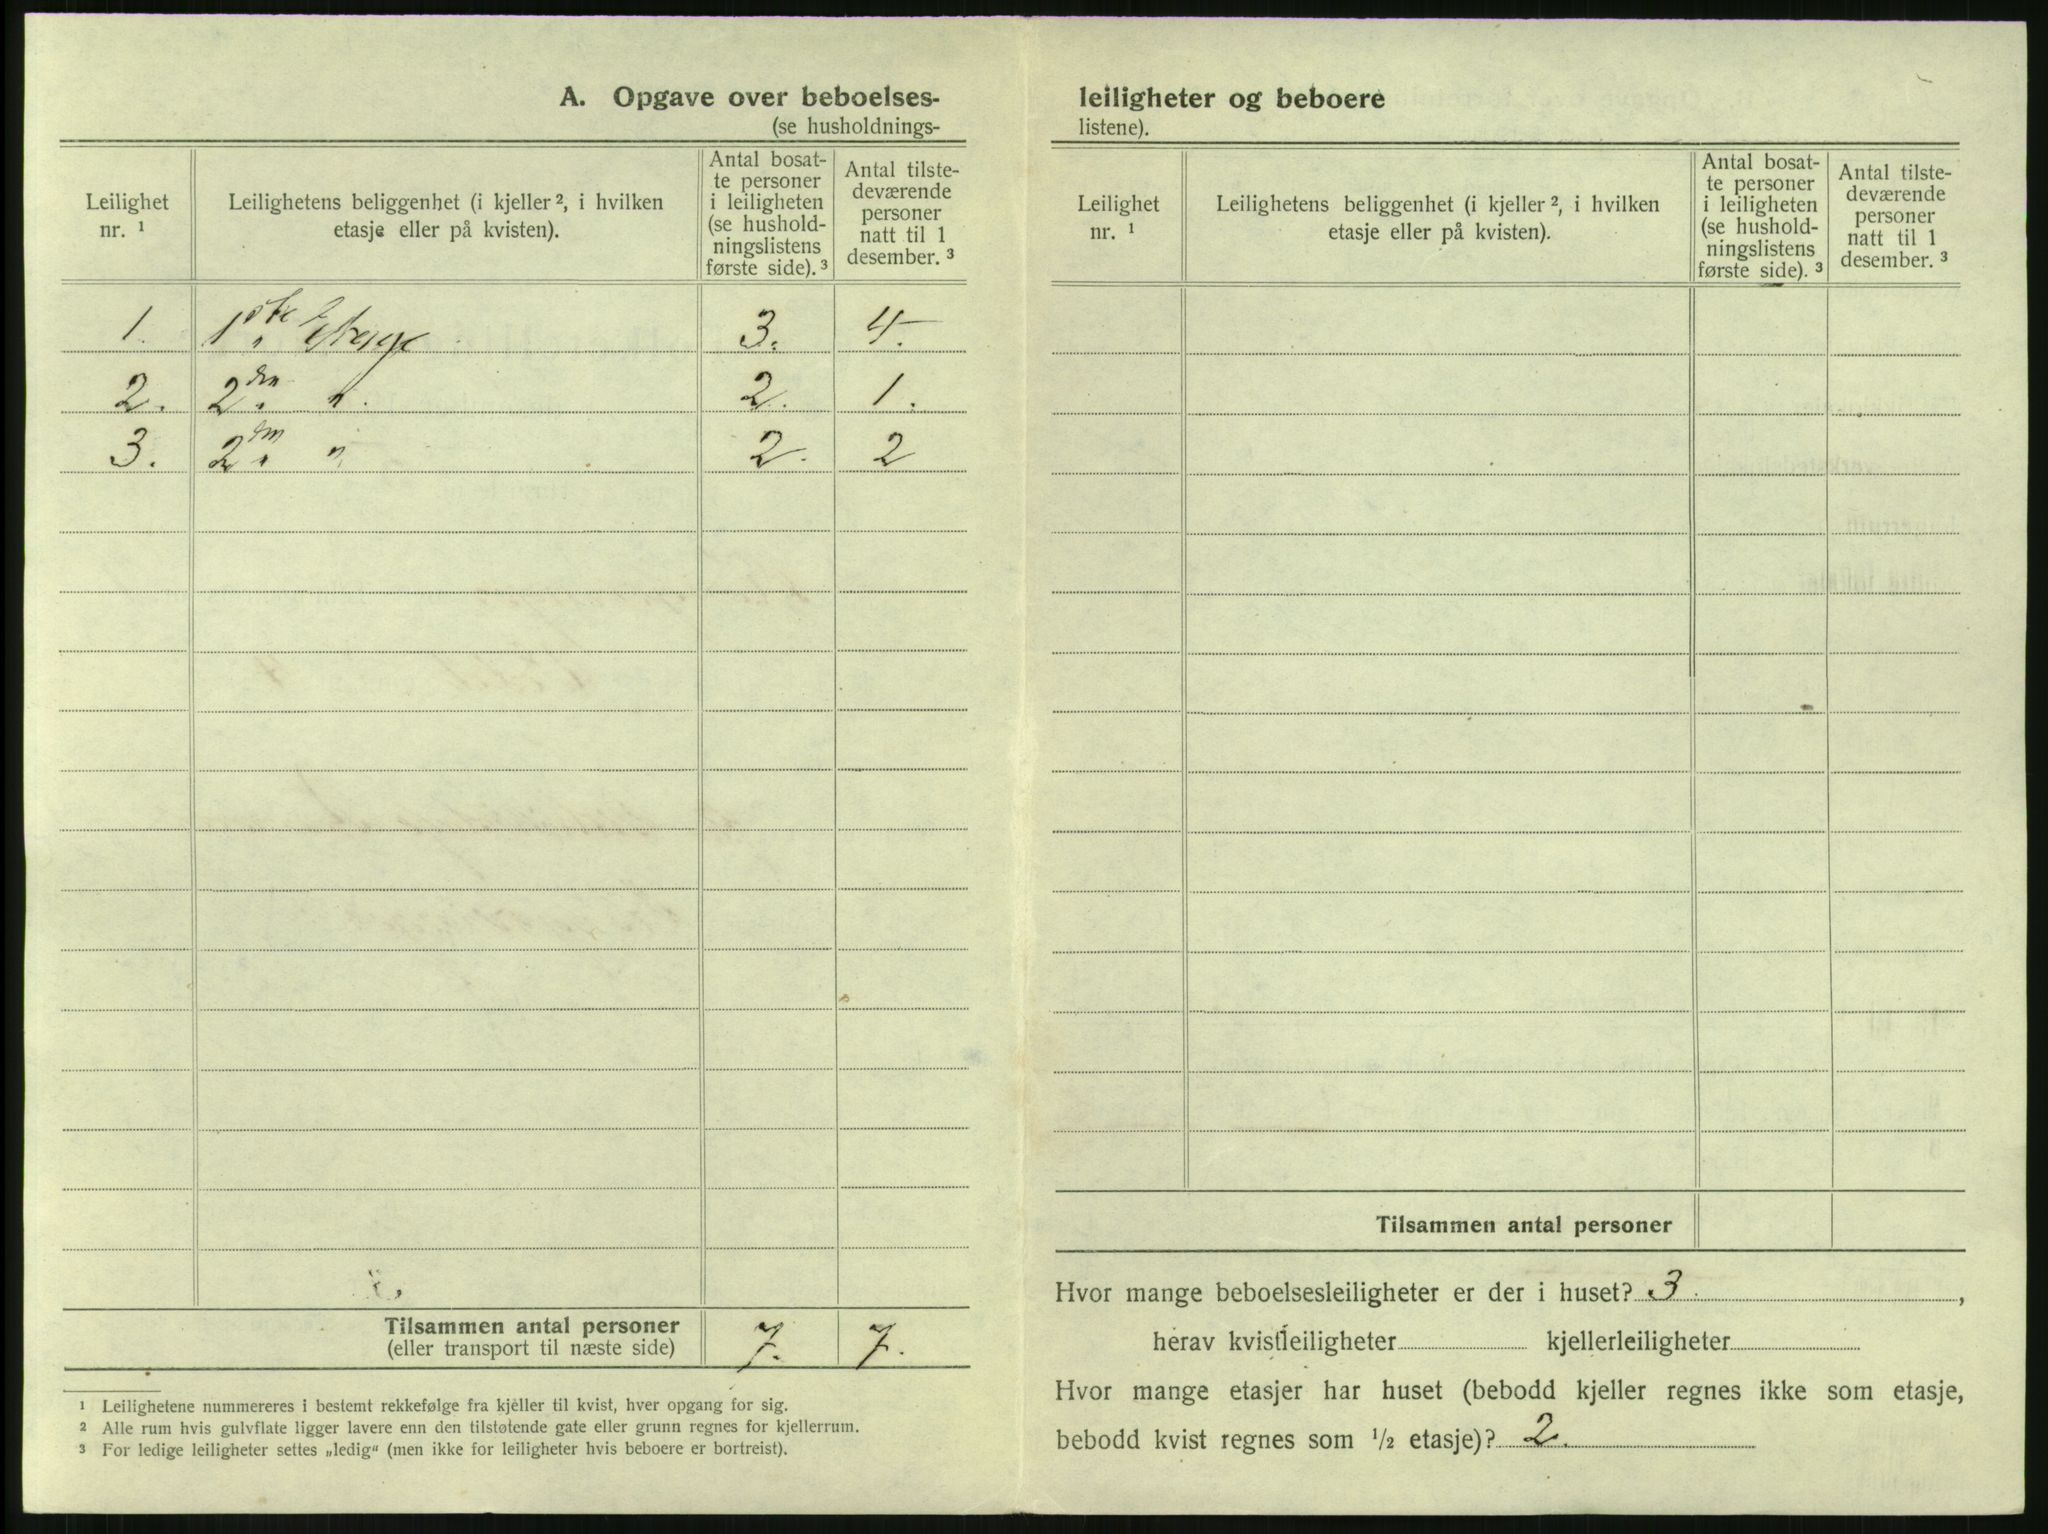 A. Opgave over beboelses-
(se husholdnings-
Leilighet
nr. ¹
Leilighetens beliggenhet (i kjeller ², i hvilken
etasje eller på kvisten).
Antal bosat-
te personer
i leiligheten
(se hushold-
ningslistens
første side). ³
Antal tilste-
deværende
personer
natt til 1
desember. ³
1. 1ste " Etasge 3. 4.
2. 2den " 2. 1.
3. 2den " 2. 2
Tilsammen antal personer 7. 7.
(eller transport til næste side)
¹ Leilighetene nummereres i bestemt rekkefølge fra kjeller til kvist, hver opgang for sig.
² Alle rum hvis gulvflate ligger lavere enn den tilstøtende gate eller grunn regnes for kjellerrum.
³ For ledige leiligheter settes „ledig“ (men ikke for leiligheter hvis beboere er bortreist).
leiligheter og beboere
listene).
Leilighet
nr. ¹
Leilighetens beliggenhet (i kjeller ², i hvilken
etasje eller på kvisten).
Antal bosat-
te personer
i leiligheten
(se hushold-
ningslistens
første side). ³
Antal tilste-
deværende
personer
natt til 1
desember. ³
Tilsammen antal personer
Hvor mange beboelsesleiligheter er der i huset? 3.,
herav kvistleiligheter kjellerleiligheter
Hvor mange etasjer har huset (bebodd kjeller regnes ikke som etasje,
bebodd kvist regnes som ½ etasje)? 2.